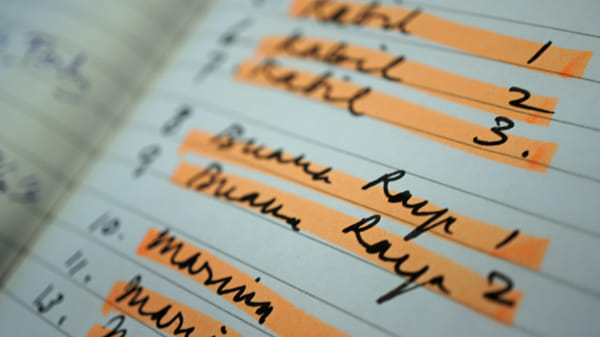 Kabil 1
6 Kabil 2
7 Kabil 3.
8 Buana Raya 1
9 Buana Raya 2
10. Marina
11. Mari
13.